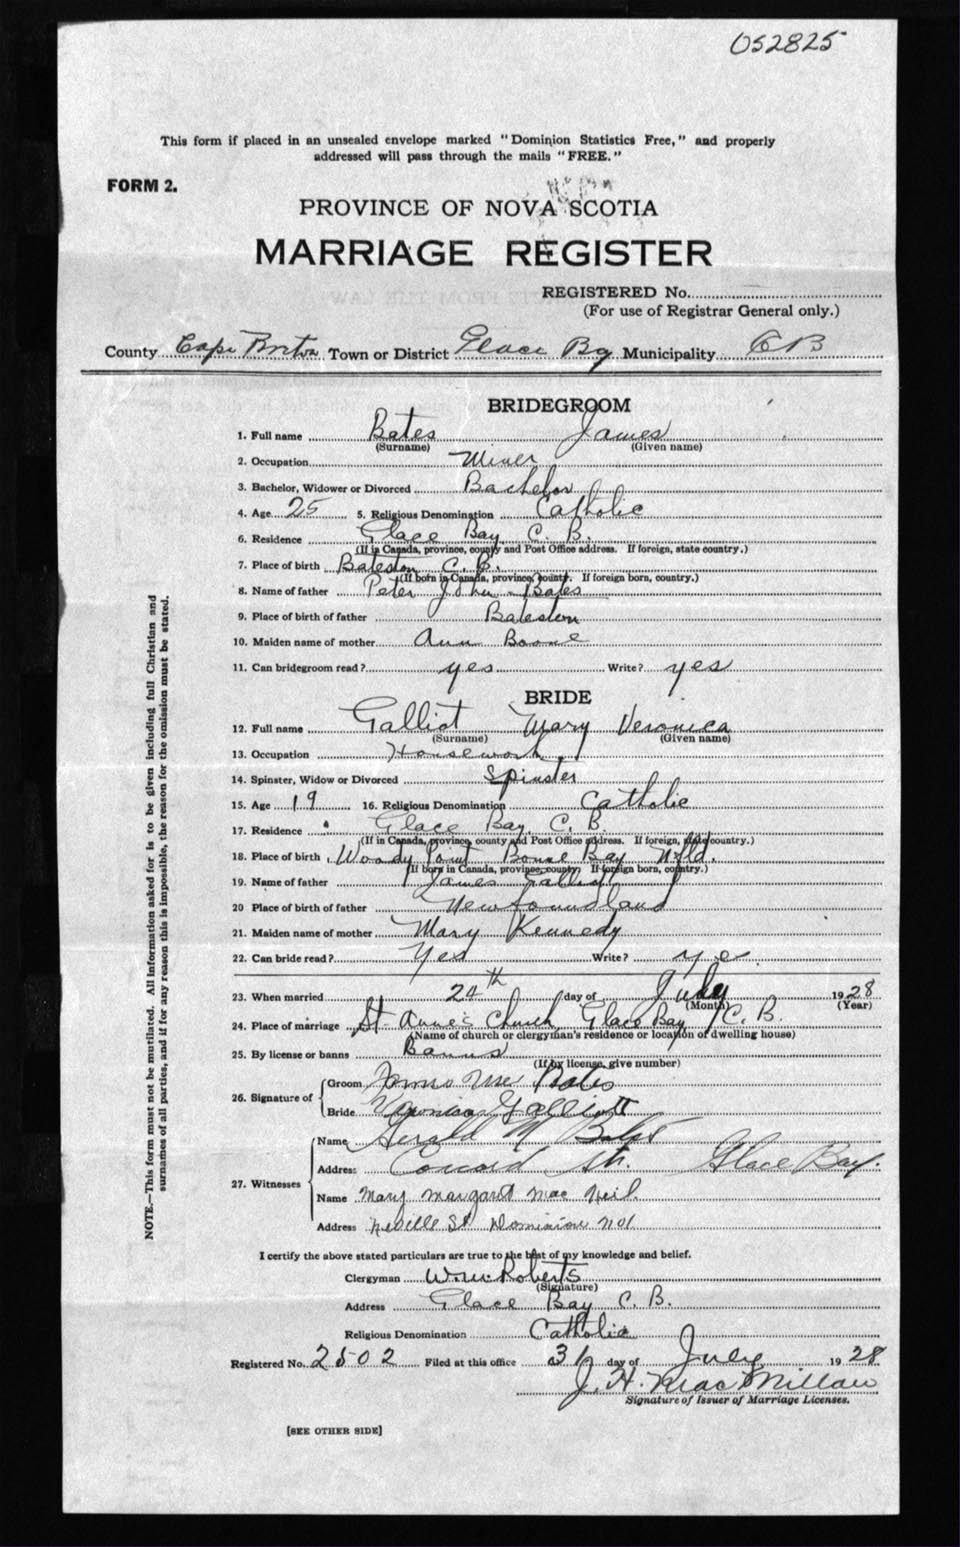 052825
This form if placed in an unsealed envelope marked "Dominion Statistics Free," and properly
addressed will pass through the mails "FREE."
FORM 2.
PROVINCE OF NOVA SCOTIA
MARRIAGE REGISTER
REGISTERED No.
(For use of Registrar General only.)
County Cape Breton Town or District Glace Bay Municipality C B
BRIDEGROOM
1. Full name Bates James
(Surname) (Given name)
2. Occupation Miner
3. Bachelor, Widower or Divorced Bachelor
4. Age 25 5. Religious Denomination Catholic
6. Residence Glace Bay C. B.
(If in Canada, province, county and Post Office address. If foreign, state country.)
7. Place of birth Bateston C. B.
(If born in Canada, province, county. If foreign born, country.)
8. Name of father Peter John Bates
9. Place of birth of father Bateston
10. Maiden name of mother Ann Boone
11. Can bridegroom read? yes Write? yes
BRIDE
12. Full name Galliot Mary Veronica
(Surname) (Given name)
13. Occupation Housework
14. Spinster, Widow or Divorced Spinster
15. Age 19 16. Religious Denomination Catholic
17. Residence Glace Bay, C. B.
(If in Canada, province, county and Post Office address. If foreign, state country.)
18. Place of birth Woody Point Bonne Bay Nfld.
(If born in Canada, province, county. If foreign born, country.)
19. Name of father James Galliot
20 Place of birth of father Newfoundland
21. Maiden name of mother Mary Kennedy
22. Can bride read? Yes Write? ye.
23. When married 24th day of July 1928
(Month) (Year)
24. Place of marriage St. Anne's Church, Glace Bay, C. B.
(Name of church or clergyman's residence or location of dwelling house)
25. By license or banns Banns
(If by license, give number)
26. Signature of
Groom Bates
Bride Veronica Galliott
27. Witnesses
Name Gerald M Bates
Address St. Glace Bay.
Name Mary Margaret Mac Neil
Address Neville St Dominion No1
I certify the above stated particulars are true to the best of my knowledge and belief.
Clergyman W. M. Roberts
(Signature)
Address Glace Bay C. B.
Religious Denomination Catholic
Registered No. 2502 Filed at this office 31 day of July 1928
J. H. MacMillan
Signature of Issuer of Marriage Licenses.
[SEE OTHER SIDE]
NOTE.—This form must not be mutilated. All information asked for is to be given including full Christian and
surnames of all parties, and if for any reason this is impossible, the reason for the omission must be stated.